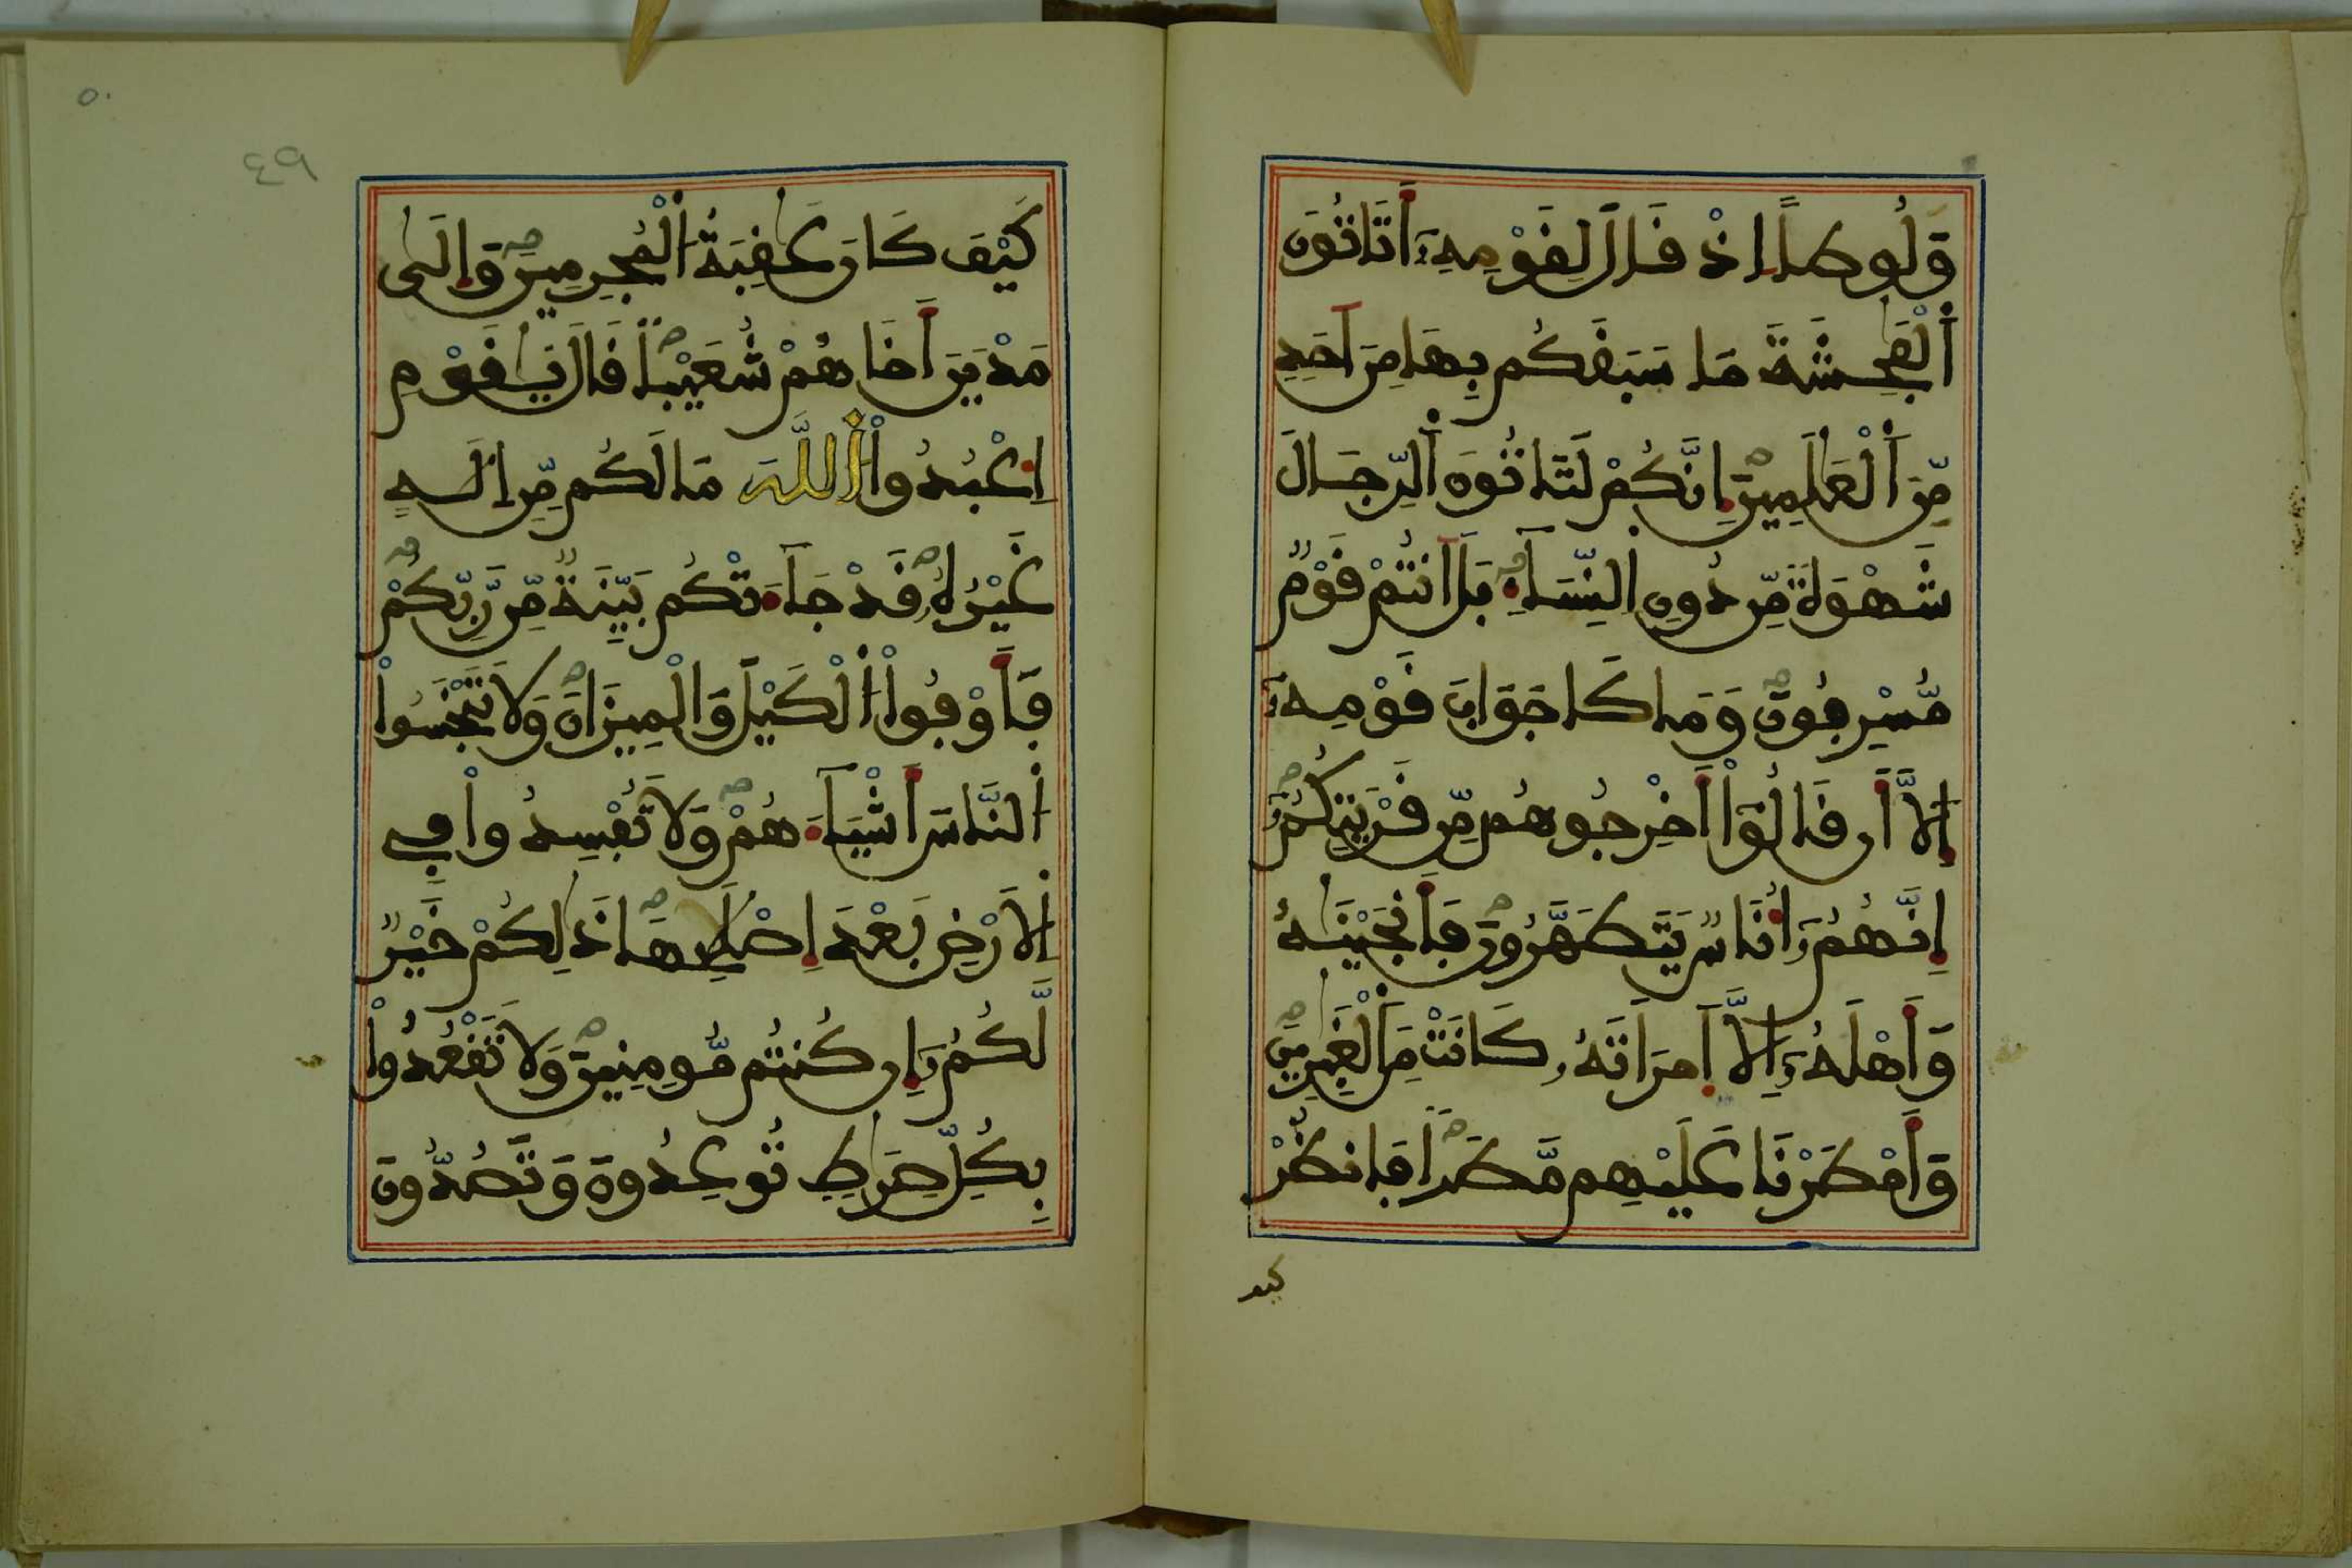 وَلُوطاً اِذْ قَالَ لِقَوْمِهِۦٓ أَتَاتُونَ
اَ۬لْفَٰحِشَةَ مَا سَبَقَكُم بِهَا مِنَ اَحَدٖ
مِّنَ اَ۬لْعَٰلَمِينَ إِنَّكُمْ لَتَاتُونَ اَ۬لرِّجَالَ
شَهْوَةٗ مِّن دُونِ اِ۬لنِّسَآءِ بَلَ اَنتُمْ قَوْمٞ
مُّسْرِفُونَ وَمَا كَا جَوَابَ قَوْمِهِۦٓ
إِلَّآ أَن قَالُوٓاْ أَخْرِجُوهُم مِّن قَرْيَتِكُمُۥٓ
إِنَّهُمُۥٓ أُنَاسٞ يَتَطَهَّرُونَ فَأَنجَيْنَٰهُ
وَأَهْلَهُۥٓ إِلَّا اَ۪مْرَأَتَهُۥ كَانَتْ مِنَ اَ۬لْغَٰبِرِينَ
وَأَمْطَرْنَا عَلَيْهِم مَّطَراٗ فَانظُرْ
كيف
٥٠
٤٩
كَيْفَ كَانَ عَٰقِبَةُ اُ۬لْمُجْرِمِينَ وَإِلَىٰ
مَدْيَنَ أَخَاهُمْ شُعَيْباٗ قَالَ يَٰقَوْمِ
اِ۟عْبُدُواْ اُ۬للَّهَ مَا لَكُم مِّنِ اِلَٰهٍ
غَيْرُهُۥ قَدْ جَآءَتْكُم بَيِّنَةٞ مِّن رَّبِّكُمْ
فَأَوْفُواْ اُ۬لْكَيْلَ وَالْمِيزَانَ وَلَا تَبْخَسُواْ
اُ۬لنَّاسَ أَشْيَآءَهُمْ وَلَا تُفْسِدُواْ فِي
اِ۬لَارْضِ بَعْدَ إِصْلَٰحِهَا ذَٰلِكُمْ خَيْرٞ
لَّكُمُۥٓ إِن كُنتُم مُّومِنِينَ وَلَا تَقْعُدُواْ
بِكُلِّ صِرَٰطٖ تُوعِدُونَ وَتَصُدُّونَ